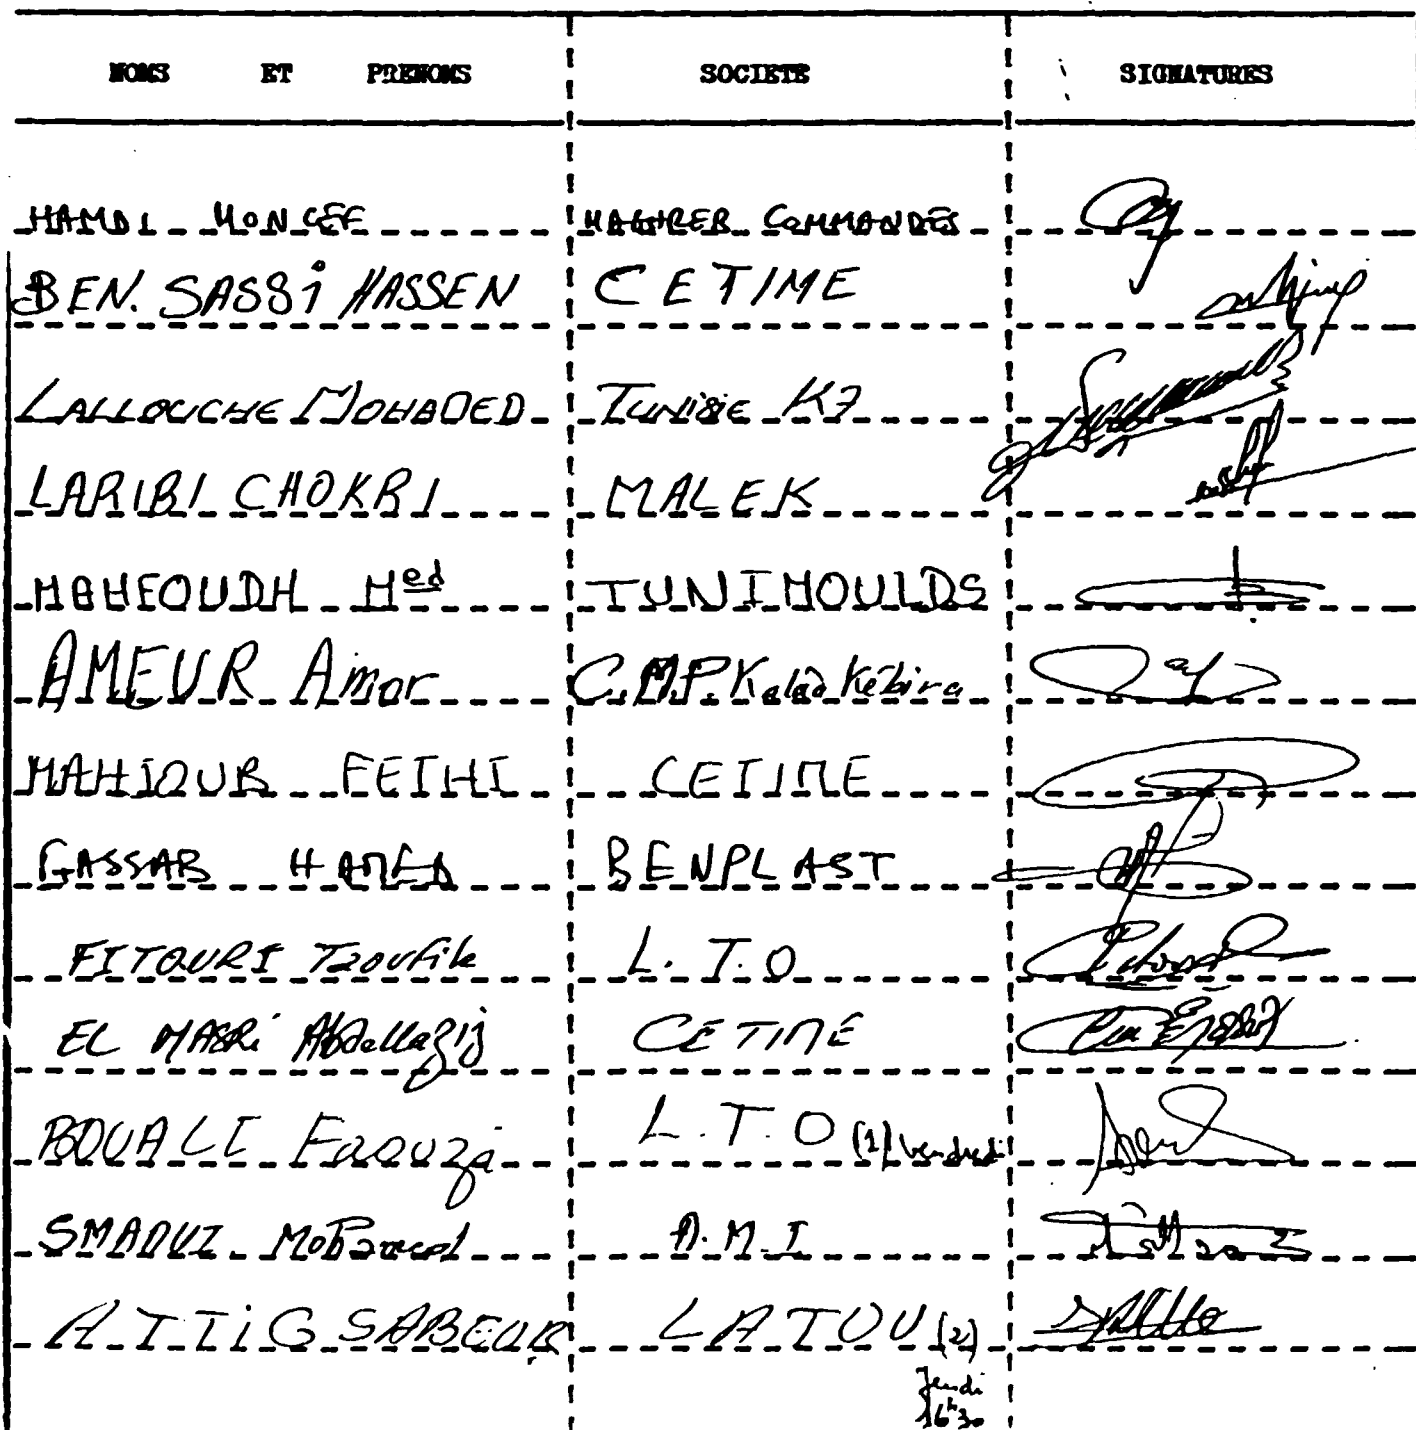 NOMS ET PRENOMS SOCIETE SIGNATURES
HAMDI MONCEF MAGHREB COMMANDES
BEN. SASSi HASSEN CETIME
LALLOUCHE MOHAMED Tunisie K7
LARIBI CHOKRI MALEK
MAHFOUDH Med TUNIMOULDS
AMEUR Amor C.M.P. Kalaâ Kébira
MAHJOUB FETHI CETIME
GASSAB HAMED BENPLAST
FITOURI Taoufik L.T.O
EL MASRi Abdellaziz CETIME
BOUALI Faouzi L.T.O (1) vendredi
SMAOUI Mohamed A.M.I
ATTiG SABEUR LATOU (2)
Jeudi
16h30